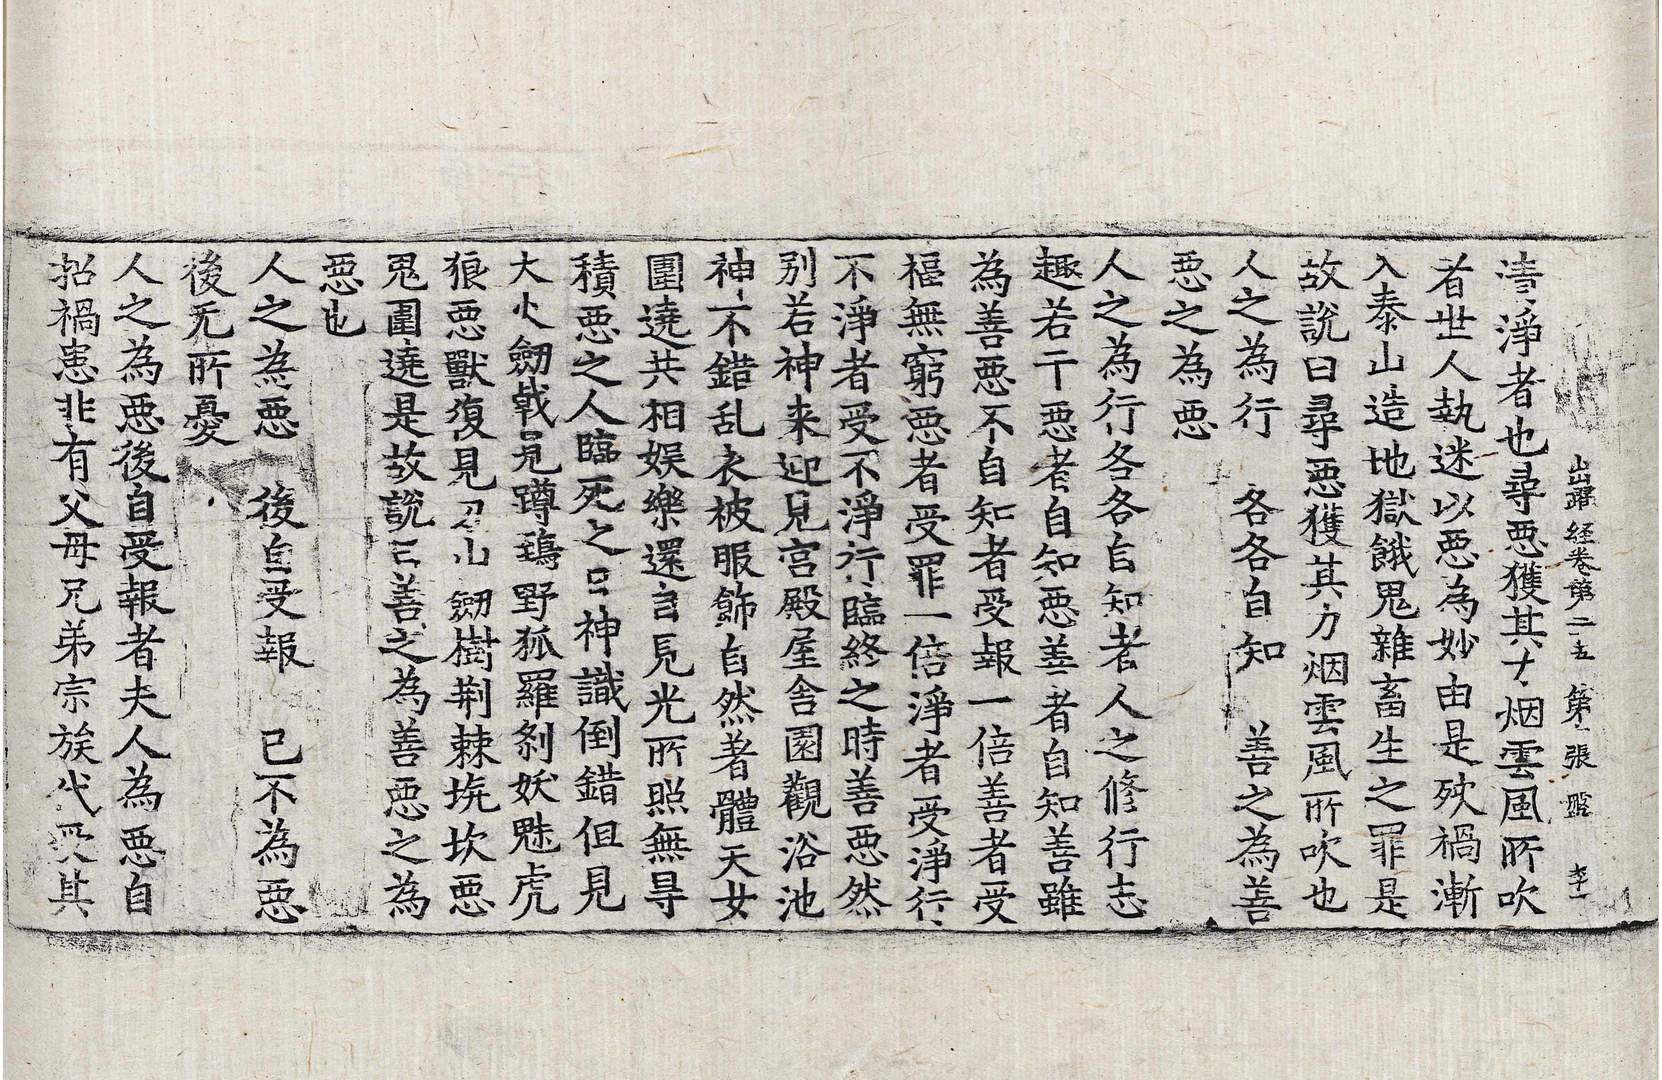 出曜経卷第二五 第 張 盤 李一
淸淨者也尋惡獲其力烟雲風所吹
者世人執迷以惡為妙由是殃禍漸
入泰山造地獄餓鬼雜畜生之罪是
故說曰尋惡獲其力烟雲風所吹也
人之為行 各各自知 善之為善
惡之為惡
人之為行各各自知者人之修行志
趣若干惡者自知惡善者自知善雖
為善惡不自知者受報一倍善者受
福無窮惡者受罪一倍淨者受淨行
不淨者受不淨行臨終之時善惡然
別若神来迎見宮殿屋舍園觀浴池
神不錯乱衣被服飾自然著體天女
圍遶共相娛樂還自見光所照無㝵
積惡之人臨死之日神識倒錯但見
大火劒戟見蹲鵄野狐羅刹妖魅虎
狼惡獸復見刀山劒樹荆棘坑坎惡
鬼圍遶是故說曰善之為善惡之為
惡也
人之為惡 後自受報 己不為惡
後无所憂
人之為惡後自受報者夫人為惡自
招禍患非有父母兄弟宗族代受其